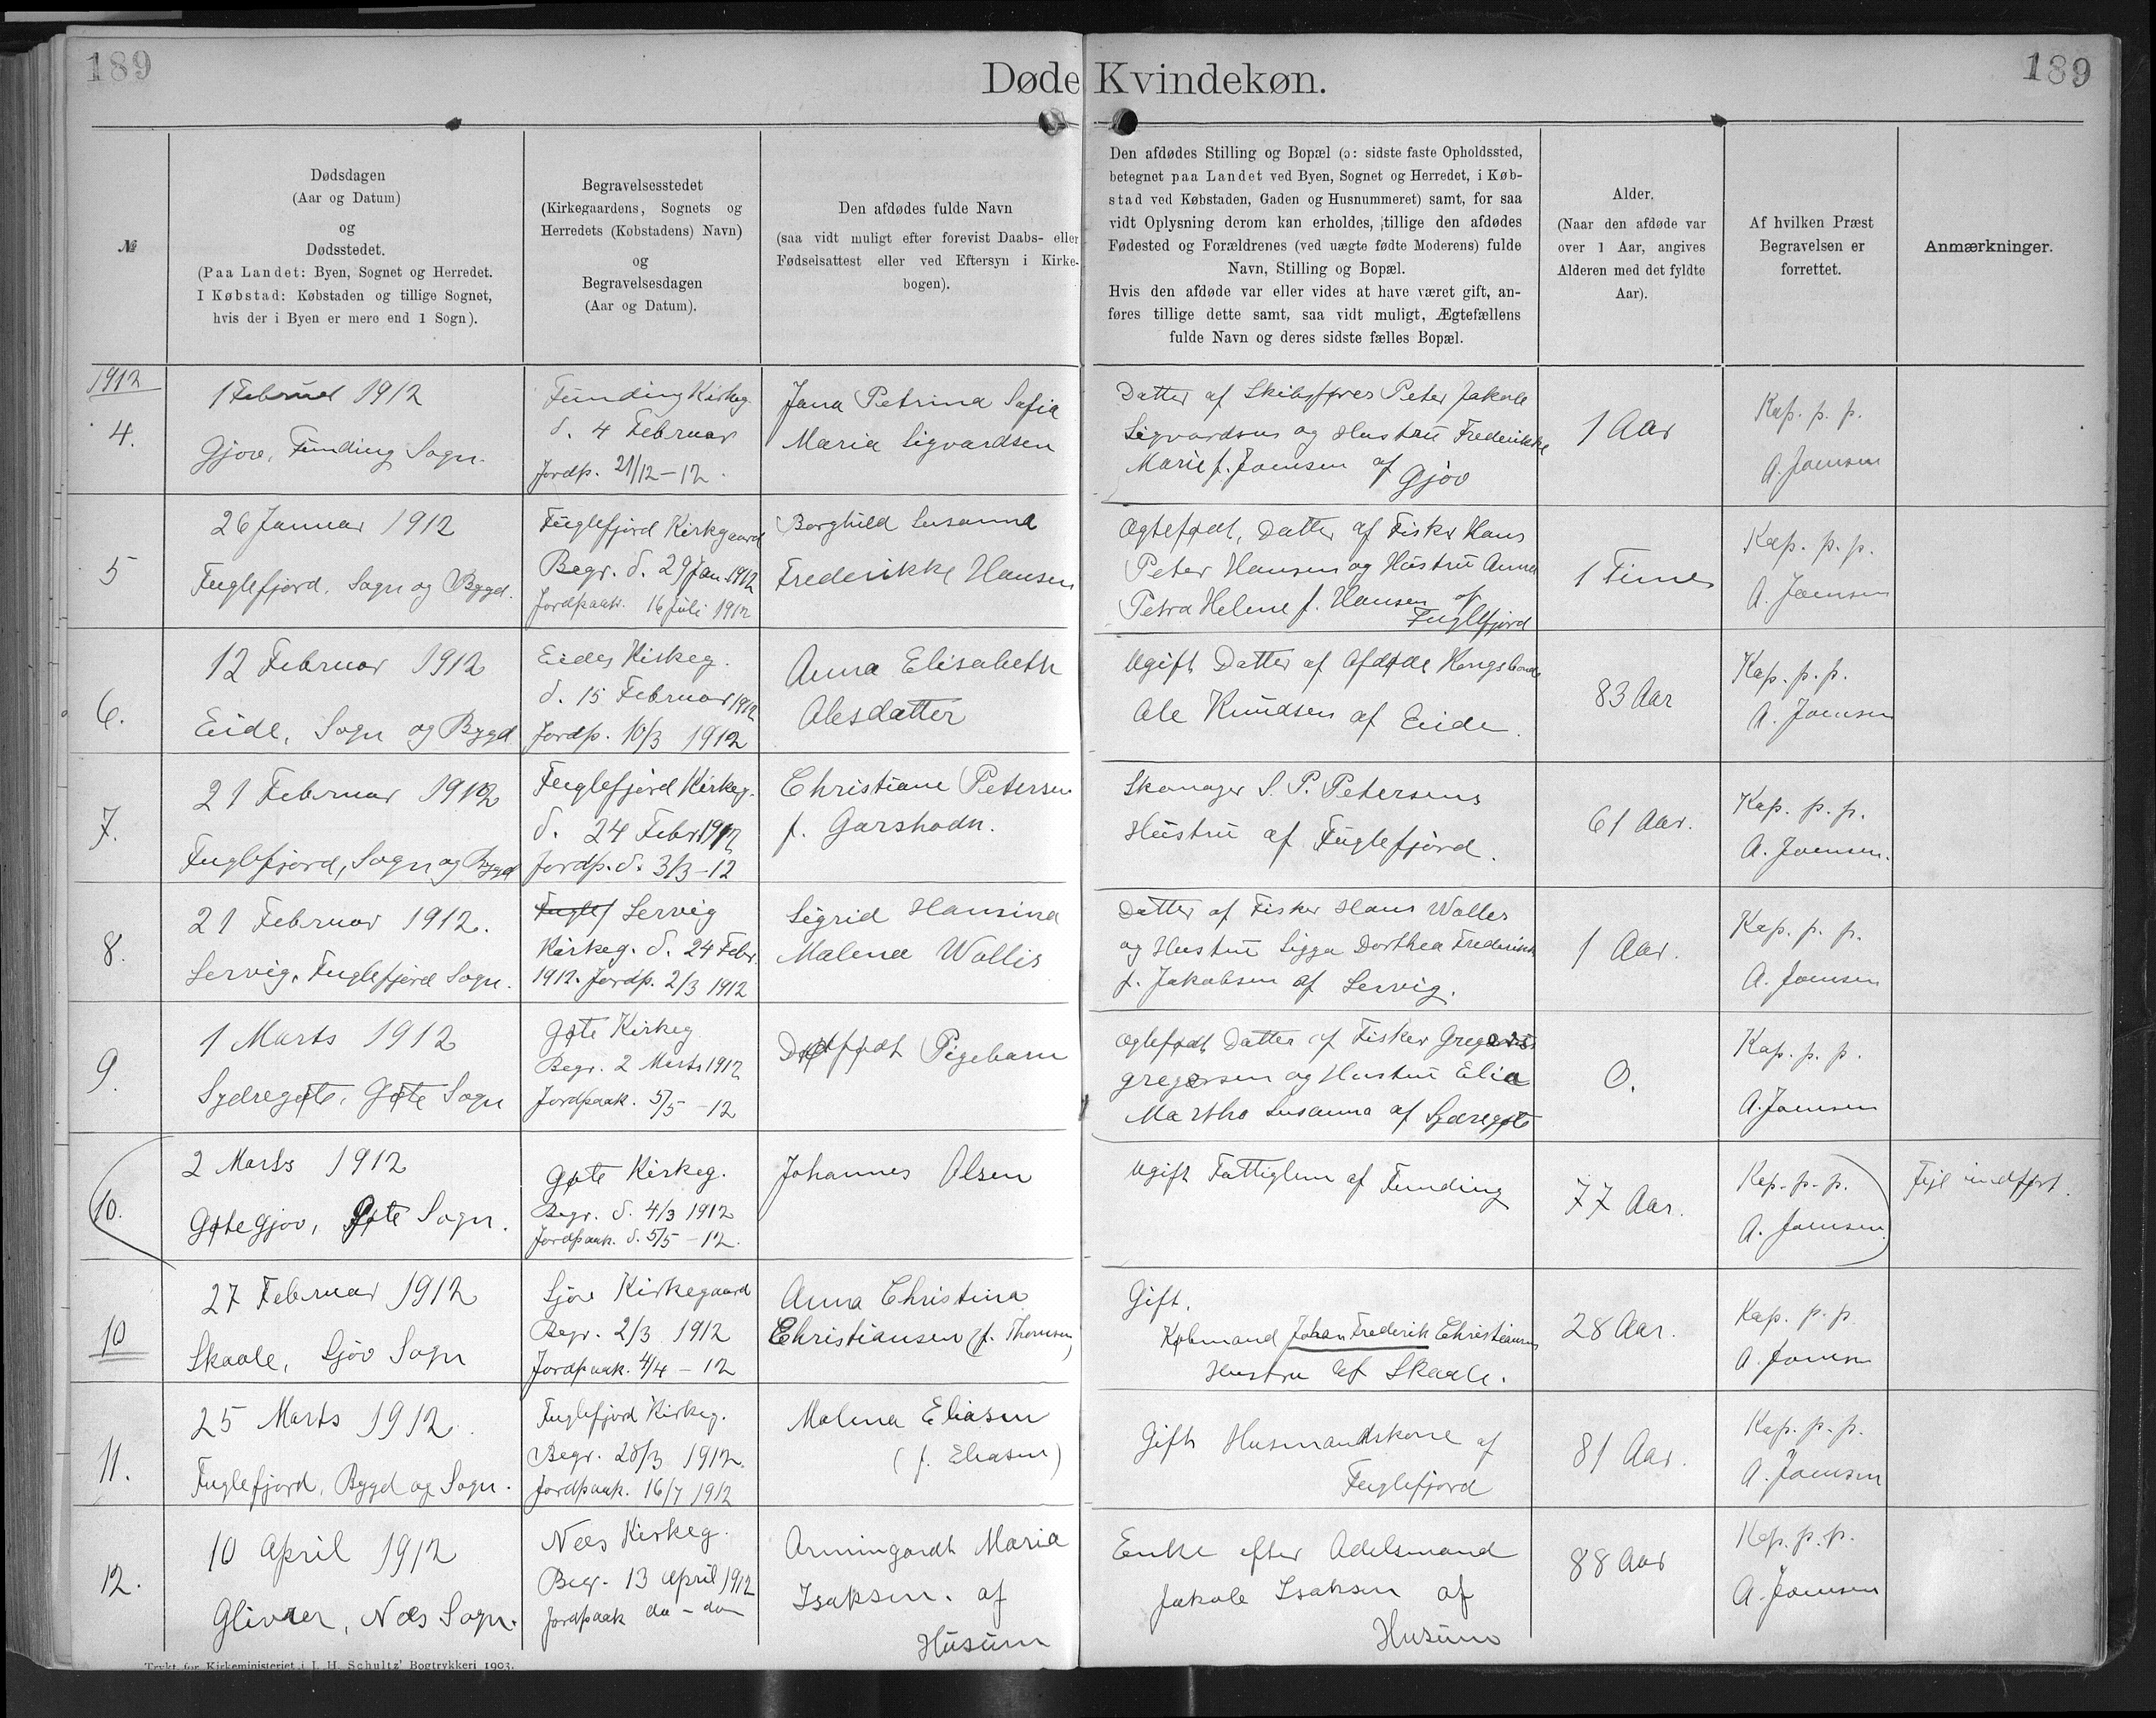 189
189
Døde Kvindekøn.
№
Dødsdagen
(Aar og Datum)
og
Dødsstedet.
(Paa Landet: Byen, Sognet og Herredet.
I Købstad: Købstaden og tillige Sognet,
hvis der i Byen er mere end 1 Sogn).
Begravelsesstedet
(Kirkegaardens, Sognets og
Herredets (Købstadens) Navn)
og
Begravelsesdagen
(Aar og Datum).
Den afdødes fulde Navn
(saa vidt muligt efter forevist Daabs- eller
Fødselsattest eller ved Eftersyn i Kirke-
bogen).
Den afdødes Stilling og Bopæl (ɔ: sidste faste Opholdssted,
betegnet paa Landet ved Byen, Sognet og Herredet, i Køb-
stad ved Købstaden, Gaden og Husnummeret) samt, for saa
vidt Oplysning derom kan erholdes, tillige den afdødes
Fødested og Forældrenes (ved uægte fødte Moderens) fulde
Navn, Stilling og Bopæl.
Hvis den afdøde var eller vides at have været gift, an-
føres tillige dette samt, saa vidt muligt, Ægtefællens
fulde Navn og deres sidste fælles Bopæl.
Alder.
(Naar den afdøde var
over 1 Aar, angives
Alderen med det fyldte
Aar).
Af hvilken Præst
Begravelsen er
forrettet.
Anmærkninger.
1912
4.
1 Februar 1912
Gjov, Funding Sogn.
Funding Kirkeg.
d. 4 Februar
Jordp. 21/12-12.
Jana Petrina Sofia
Maria Sigvardsen
Datter af Skibsfører Peter Jakob
Sigvardsen og Hustru Frederikke
Marie f. Joensen af Gjov
1 Aar
Kap. p. p.
A. Joensen
5
26 Januar 1912
Fuglefjord, Sogn og Bygd.
Fuglefjord Kirkgaard
Begr. d. 29 Jan. 1912
Jordpaak. 16 Juli 1912
Borghild Susanna
Frederikke Hansen
Ægtefødt, Datter af Fisker Hans
Peter Hansen og Hustru Anna
Petra Helene f. Hansen af
Fuglefjord
1 Time
Kap. p. p.
A. Joensen
6.
12 Februar 1912
Eide, Sogn og Bygd
Eides Kirkeg.
d. 15 Februar 1912
Jordp. 10/3 1912
Anna Elisabeth
Olesdatter
Ugift Datter af Afdøde Kongsbonde
Ole Knudsen af Eide.
83 Aar
Kap. p. p.
A. Joensen
7.
21 Februar 1912
Fuglefjord, Sogn og Bygd
Fuglefjord Kirkeg.
d. 24 Febr 1912
Jordp. d. 3/3-12
Christiane Petersen
f. Garshodn.
Skomager S. P. Petersens
Hustru af Fuglefjord.
61 Aar.
Kap. p. p.
A. Joensen.
8.
21 Februar 1912.
Lervig, Fuglefjord Sogn.
Fuglef Lervig
Kirkeg. d. 24 Febr.
1912. Jordp. 2/3 1912
Sigrid Hansina
Malena Wollis
Datter af Fisker Hans Wolles
og Hustru Sigga Dorthea Frederikke
f. Jakobsen af Lervig.
1 Aar.
Kap. p. p.
A. Joensen
9.
1 Marts 1912
Sydregøte, Gøte Sogn
Gøte Kirkeg
Begr. 2 Marts 1912
Jordpaak. 5/5 -12
Dødfødt Pigebarn
Ægtefødt Datter af Fisker
Gregersen og Hustru Elia
Martha Susanna af Sydregøte
0.
Kap. p. p.
A. Joensen
10.
2 Marts 1912
Gøtegjov, Gøte Sogn.
Gøte Kirkeg.
Begr. d. 4/3 1912
Jordpaak. d. 5/5 -12.
Johannes Olsen
Ugift Fattiglem af Funding
77 Aar.
Kap. p. p.
A. Joensen
Fejl indført.
10
27 Februar 1912
Skaale, Sjov Sogn
Sjov Kirkegaard
Begr. 2/3 1912
Jordpaak. 4/4 - 12
Anna Christina
Christiansen (f. Thomsen)
Gift.
Købmand Johan Frederik Christiansens
Hustru af Skaale.
28 Aar.
Kap. p. p
A. Joensen
11.
25 Marts 1912.
Fuglefjord, Bygd og Sogn.
Fuglefjord Kirkeg.
Begr. 28/3 1912.
Jordpaak. 16/7 1912
Malena Eliasen
(f. Eliasen)
Gift Husmandskone af
Fuglefjord
81 Aar.
Kap. p. p.
A. Joensen
12.
10 April 1912
Glivrer, Næs Sogn.
Næs Kirkeg.
Begr. 13 April 1912
Jordpaak do - do
Armingardt Maria
Isaksen. af
Husum
Enke efter Odelsmand
Jakob Isaksen af
Husum
88 Aar
Kap. p. p.
A. Joensen
Trykt for Kirkeministeriet i J. H. Schultz' Bogtrykkeri 1903.